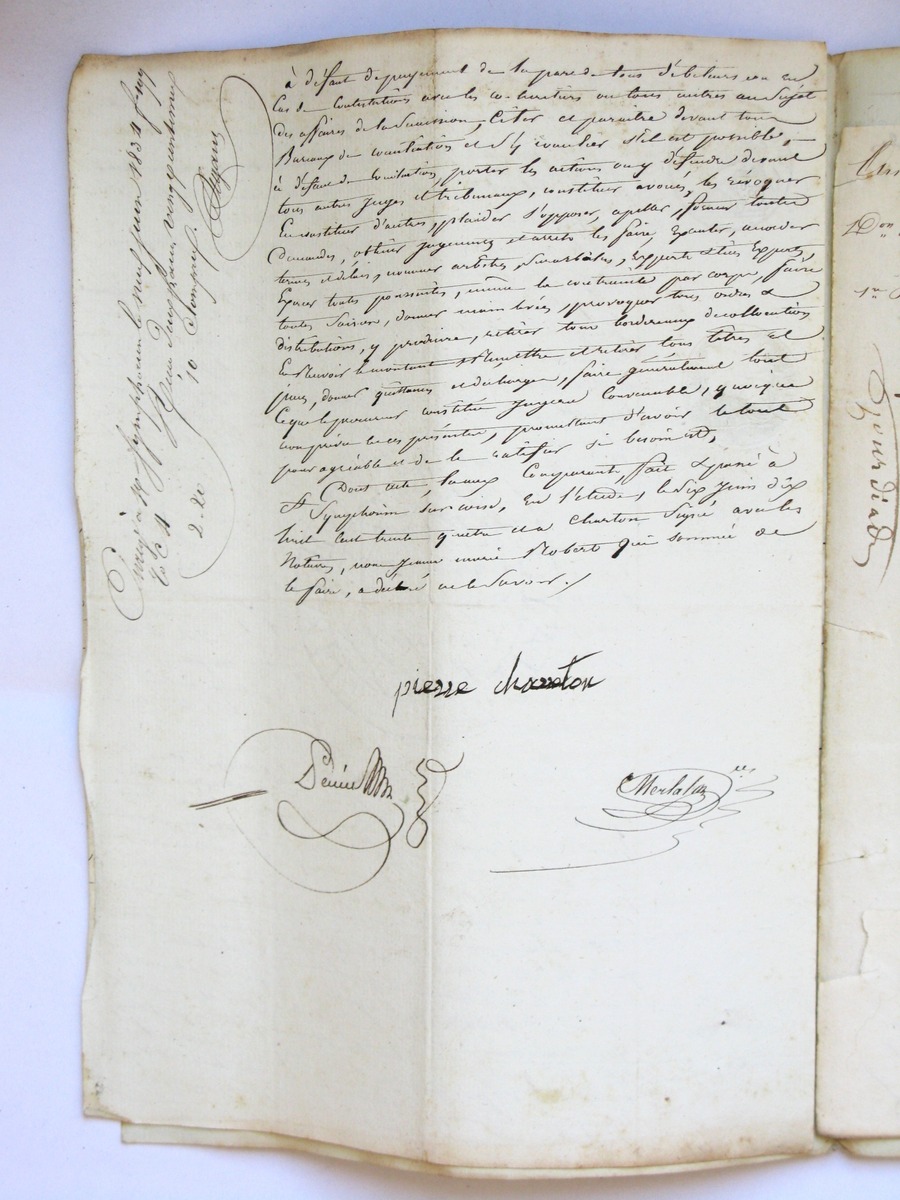 à défaut de payement de la part de tous débiteurs ou en
Cas de Contestations avec les co-heritiers ou tous autres au Sujet
des affaires de la Succession, Citer et paraitre devant tous
Bureaux de conciliation et s'y concilier s'il est possible,
à défaut de Conciliation, porter les actions ou y défendre devant
tous autres juges et tribunaux, constituer avoués, les révoquer
En constituer d'autres, plaider s'opposer, apeller, former toutes
Demandes, obtenir jugements et arrets les faire Executer, accorder
termes et délais, nommer arbitres, Surarbitres, Experts & tiers Experts,
Exercer toutes poursuites, même la contrainte par corps, faire
toutes Saisies, donner main levées, provoquer tous ordres &
distributions, y produire, retirer tous bordereaux de collocation
En Recevoir le montant Remettre et retirer tous titres et
pieces, donner quittances et decharges, faire généralement tout
Ce que le procureur constitué jugera Convenable, quoique
non prévu en ces présentes, promettant d'avoir le tout
pour agréable et de le ratifier si besoin est,
Dont acte, lu aux Comparants, fait & passé à
St Symphorien Sur coise, En l'étude, le Six Juin dix
huit Cent trente quatre et a Charton Signé avec les
Notaires, non Jeanne marie Robert qui sommée de
le faire, a déclaré ne le Savoir./
pierre charreton
Enregé à St Symphorien le neuf juin 1834
Reçu deux francs vingt centimes
2.20